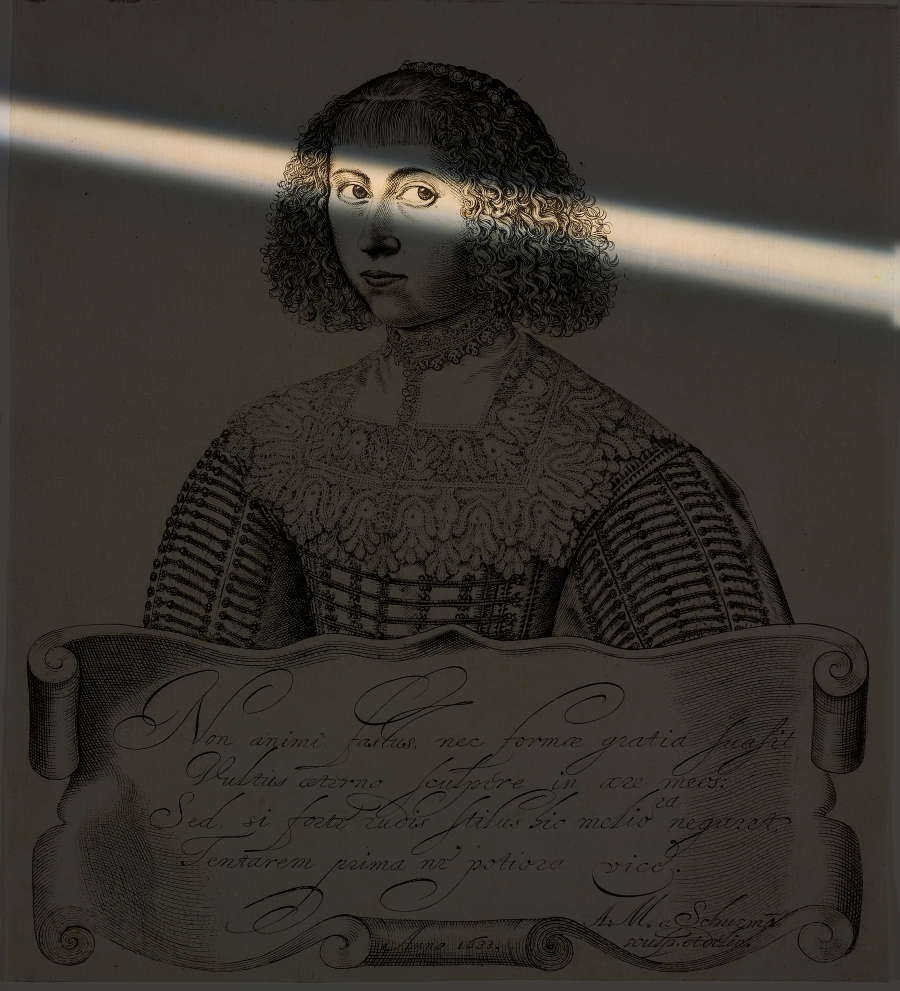 Non animi fastus, nec formæ gratia suasit
Vultus æterno sculpere in ære meos:
Sed, si forte rudis stilus hic meliora negaret,
Tentarem prima ne potiora vice.
A. M. a Schurman
sculp. et delin.
Anno 1633.